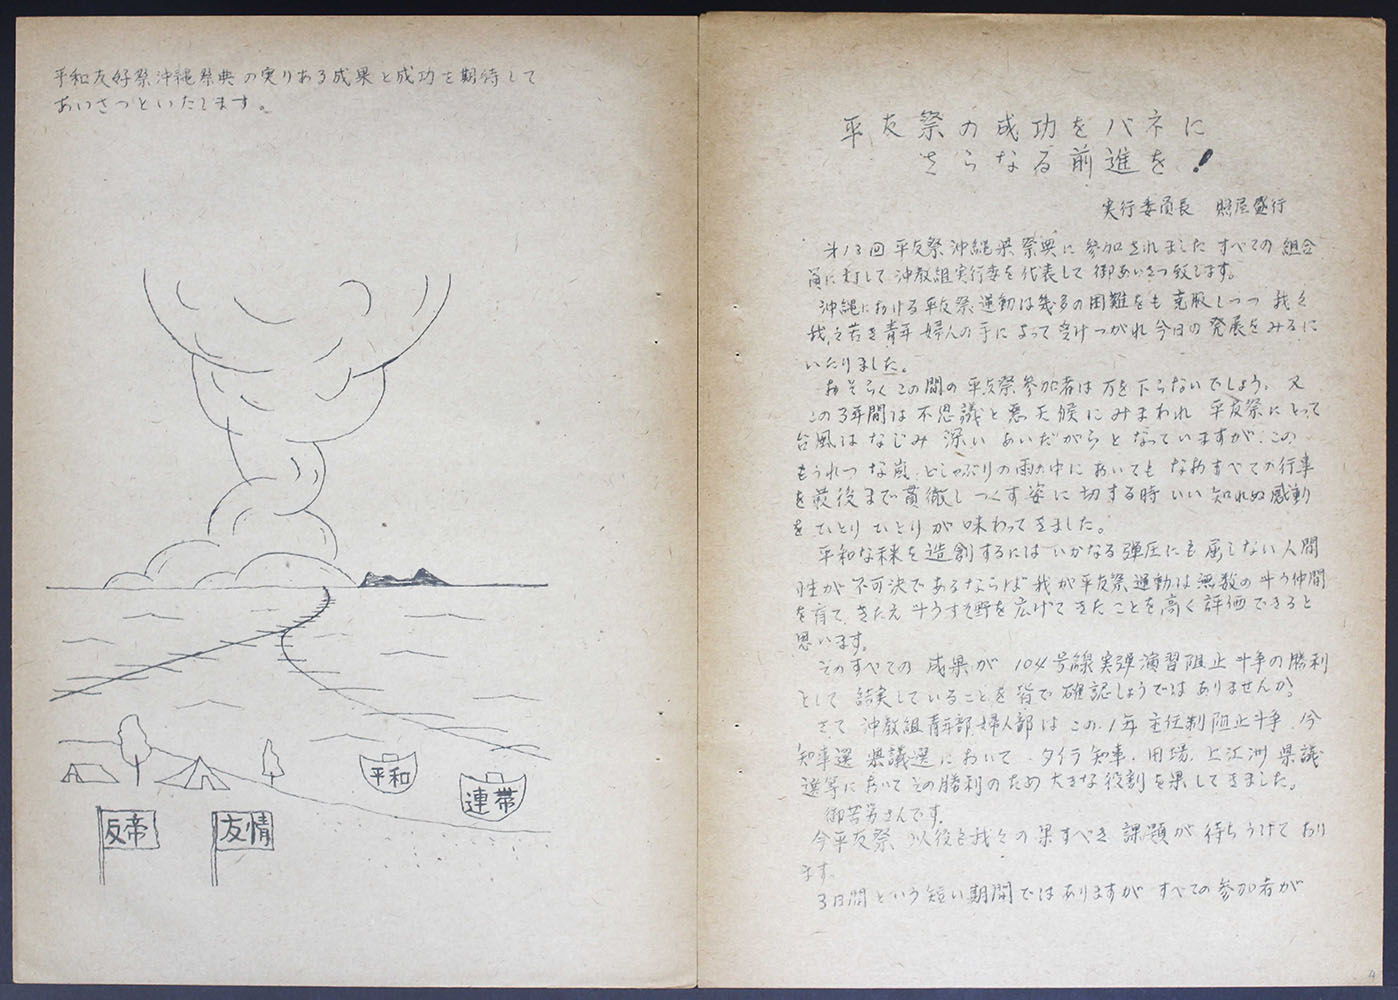 平和友好祭沖縄祭典の実りある成果と成功を期待して
あいさつといたします。
平和
連帯
反帝
友情
平友祭の成功をバネに
さらなる前進を!
実行委員長 照屋盛行
第13回平友祭沖縄県祭典に参加されました すべての組合
員に対して沖教組実行委を代表して御あいさつ致します。
沖縄における平友祭運動は幾多の困難をも克服しつつ 我々
我々若き青年婦人の手によって受けつがれ今日の発展をみるに
いたりました。
おそらくこの間の平友祭参加者は万を下らないでしょう。又
この3年間は不思議と悪天候にみまわれ 平友祭にとって
台風はなじみ深いあいだがらとなっていますが、この
もうれつな嵐、どしゃぶりの雨の中においてもなおすべての行事
を最後まで貫徹しつくす姿に切する時いい知れぬ感動
をひとりひとりが味わってきました。
平和な未来を造創するにはいかなる弾圧にも屈しない人間
性が不可決であるならば我が平友祭運動は無数の斗う仲間
を育て、きたえ斗うすそ野を広げてきたことを高く評価できると
思います。
そのすべての成果が104号線実弾演習阻止斗争の勝利
として結実していることを皆で確認しようではありませんか。
さて沖教組青年部、婦人部はこの1年主任制阻止斗争、今
知事選 県議選において、タイラ知事、田場、上江洲県議
選等においてその勝利のため大きな役割を果してきました。
御苦労さんです。
今平友祭以後も我々の果すべき課題が待ちうけており
ます。
3日間という短い期間ではありますが すべての参加者が
4